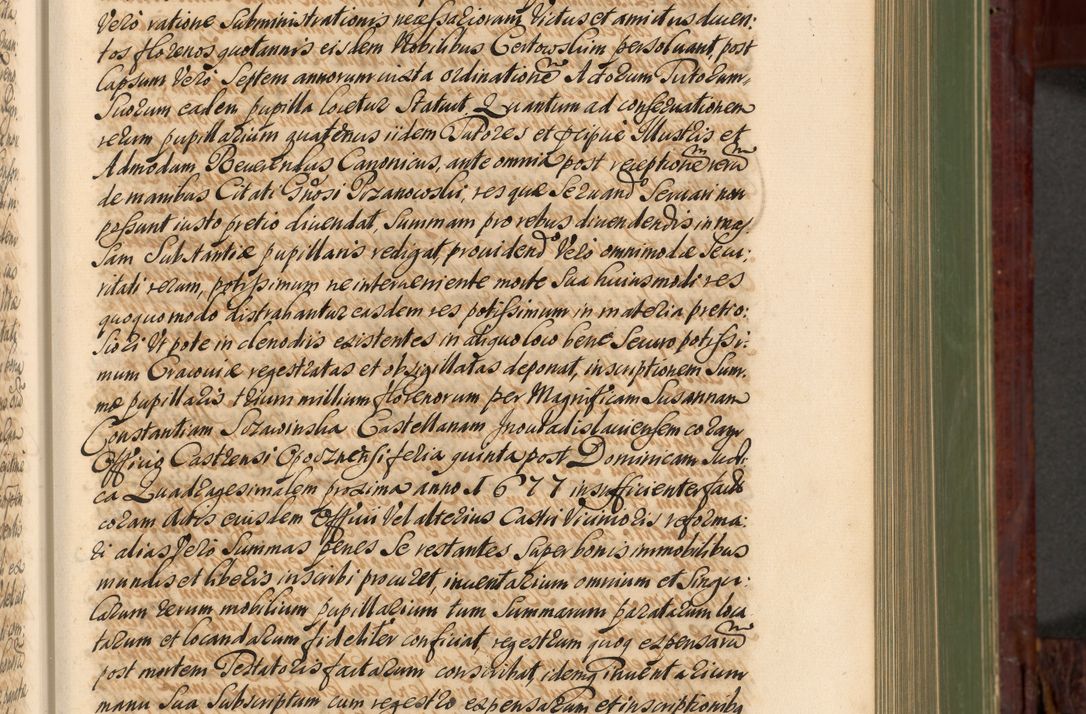 Vero ratione Subministrationis necessariorum Victus et amictus ducen:
tos florenos quotannis eisdem Nobilibus Certowskim persoluant, post
lapsum Vero Septem annorum iuxta ordinatione Actorum Tutorum
Suorum eadem pupilla locetur Statuit Quantum ad conseruationem
rerum pupillarium quatenus iidem Tutores et pcipue Illustris et
Admodum Reuerendus Canonicus, ante omnia post receptione reru
de manibus Citati Gnosi Przanowski, res quæ Seruand Seruari non
possunt iusto pretio diuendat, Summam pro rebus diuendendis in mas
sam Substantiæ pupillaris redigat, prouidend Vero omnimodæ Secu:
ritati rerum, potissimum ne interueniente morte Sua huiusmodi res
quoquo modo distrahantur easdem res potissimum in materia pretio:
siori Vt pote in clenodiis existentes in aliquo loco bene Securo potissi:
mum Cracouiæ regestratas et obsigillatas deponat, inscriptionem Sum
mæ pupillaris trium millium florenorum per Magnificam Susannam
Constantiam Castellanam Inouladislauiensem coram
Officio Castrensi Opocznensi feria quinta post Dominicam Judi
ca Quadragesimalem proxima anno 1677 insufficienter fact
coram Actis eiusdem Officii Vel alterius Castri Vicinioris reforma:
ri alias Vero Summas penes Se restantes Super bonis immobilibus
mundis et liberis inscribi procuret, inuentarium omnium et Singu:
larum rerum mobilium pupillarium tum Summarum paratarum loca
tarum et locandarum fideliter conficiat, regestrum quoq expensaru
post mortem Testatoris factarum conscribat, idemq Inuentarium
manu Sua Subscriptum cum regestro expensarum et inscriptionibq